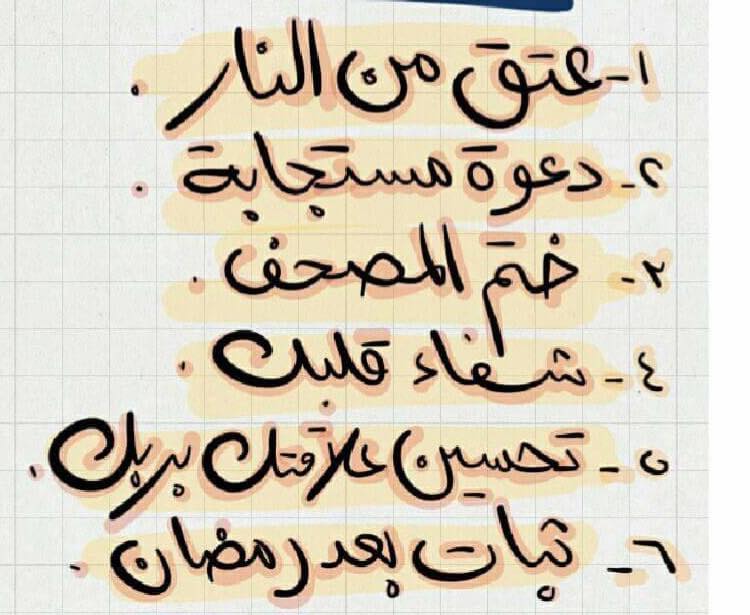 ١- عتق من النار .
٢- دعوة مستجابة .
٣- ختم المصحف .
٤- شفاء قلبك .
٥- تحسين علاقتك بربك .
٦- ثبات بعد رمضان .